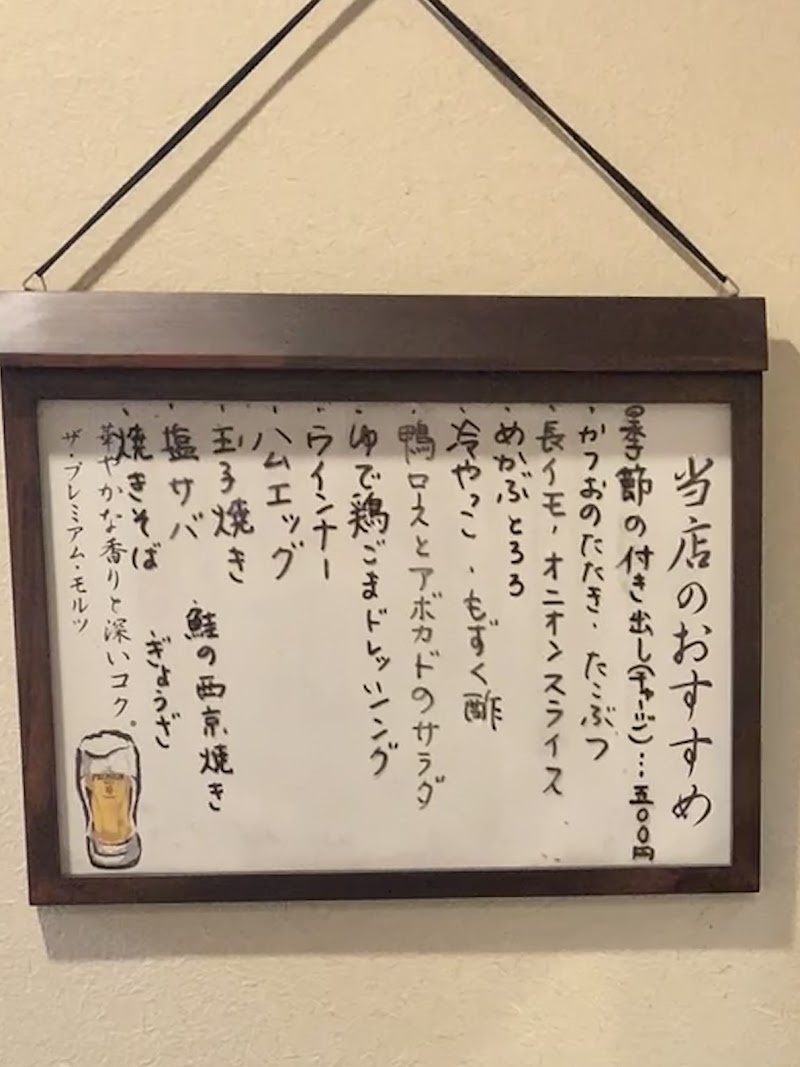 当店のおすすめ
季節の付き出し(チャージ)…五〇〇円
・かつおのたたき、たこぶつ
・長イモ、オニオンスライス
・めかぶとろろ
・冷やっこ、もずく酢
・鴨ロースとアボカドのサラダ
・ゆで鶏ごまドレッシング
・ウインナー
・ハムエッグ
・玉子焼き
・鮭の西京焼き
・塩サバ
・ぎょうざ
・焼きそば
華やかな香りと深いコク。
ザ・プレミアム・モルツ